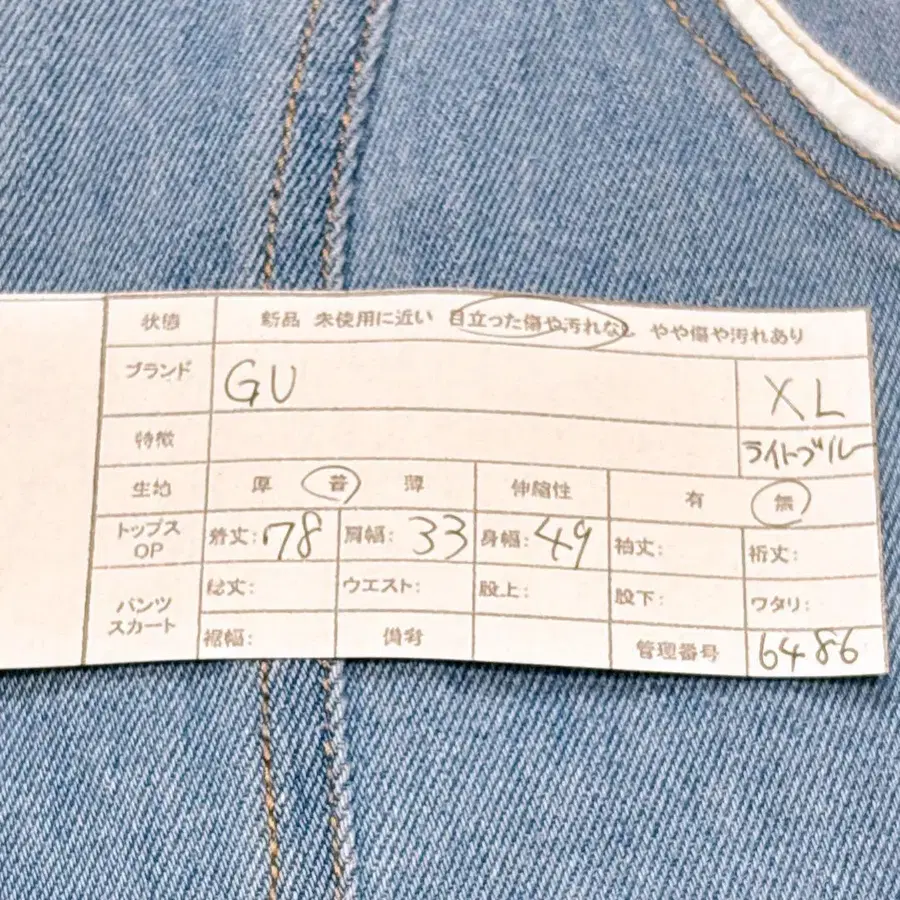 状態 新品 未使用に近い 目立った傷や汚れなし やや傷や汚れあり
ブランド GU XL
特徴 ライトブルー
生地 厚 普 薄 伸縮性 有 無
トップス OP 着丈: 78 肩幅: 33 身幅: 49 袖丈: 裄丈:
パンツ スカート 総丈: ウエスト: 股上: 股下: ワタリ:
裾幅: 備考 管理番号 6486